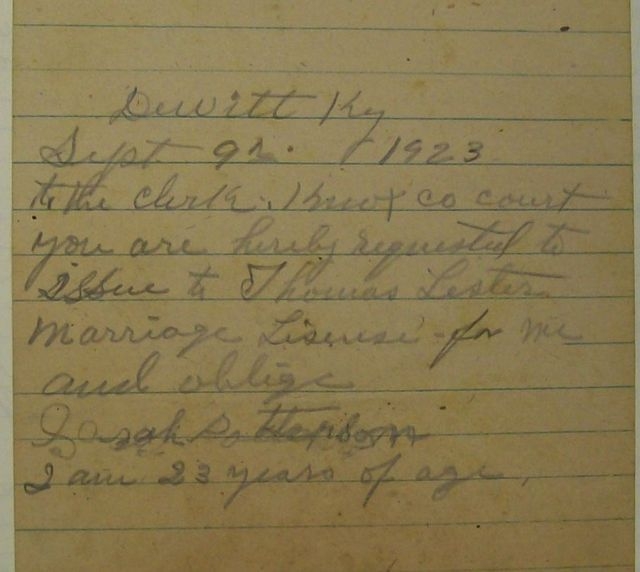 Dewitt Ky
Sept 9th. 1923
to the clerk. Knox co court
you are hereby requested to
issue to Thomas Lester
Marriage Lisense for me
and oblige
Sarah Patterson
I am 23 years of age,